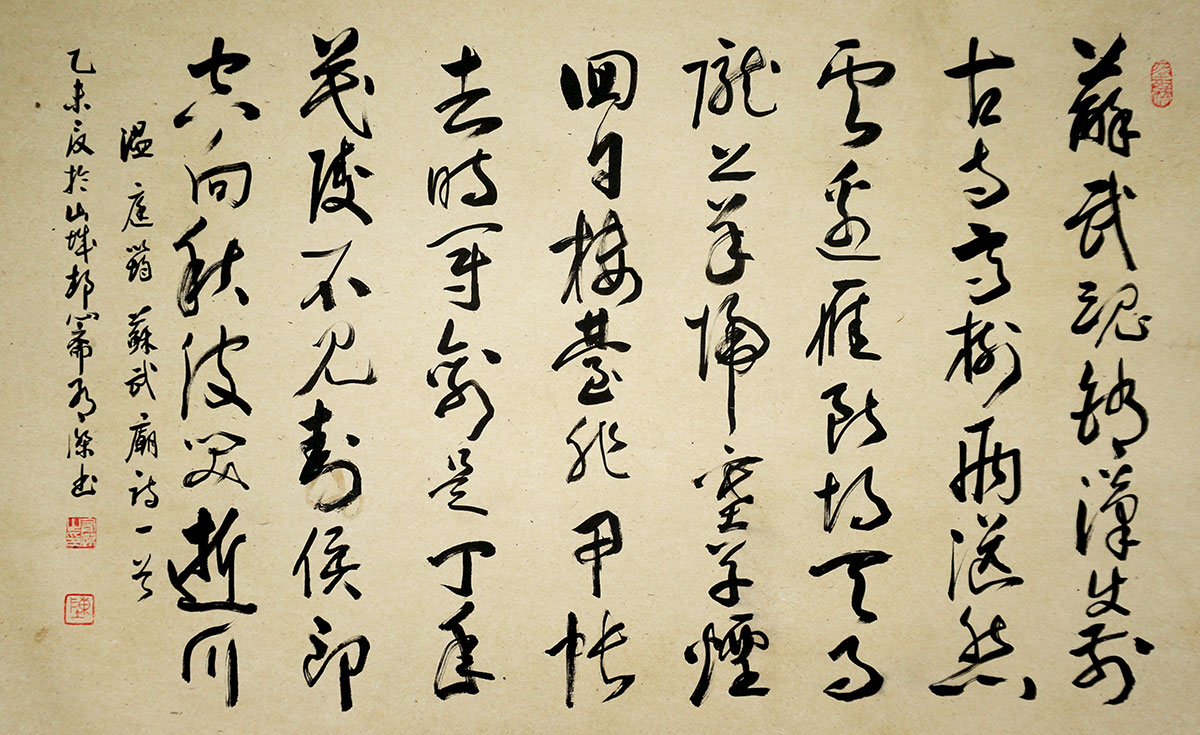 蘇武魂銷漢使前
古寺高樹兩茫然
雲邊雁斷胡天月
隴上羊歸塞草煙
回日樓臺非甲帳
去時冠劍是丁年
茂陵不見封侯印
空向秋波哭逝川
溫庭筠蘇武廟詩一首
乙未夏於山城心齋傑書
陳